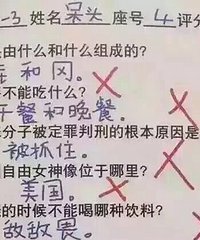 -3 姓名 呆头 座号 4 评分
是由什么和什么组成的?
和冈。
不能吃什么?
午餐和晚餐。
分子被定罪判刑的根本原因是
被抓住。
自由女神像位于哪里?
美国。
的时候不能喝哪种饮料?
敌敌畏。